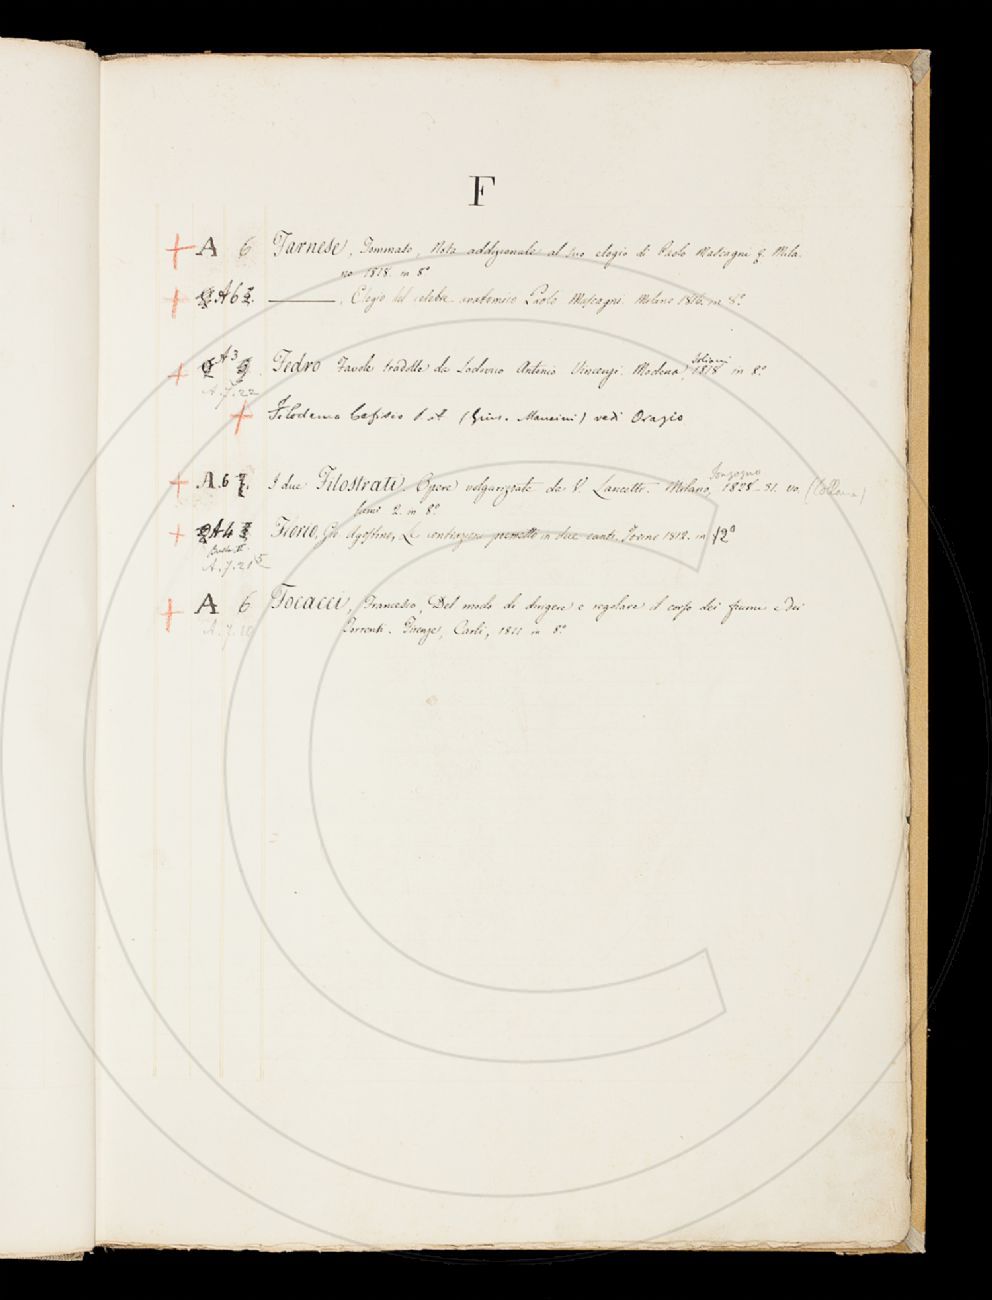 F
+ A 6 Farnese, Tommaso, Nota addizionale al suo elogio di Paolo Mascagni &. Mila-
no 1818. in 8º
+ A 6 ———, Elogio del celebre anatomico Paolo Mascagni. Milano 1816. in 8º
A 3 Soliani
+ Fedro Favole tradotte da Lodovico Antonio Vincenzi. Modena, 1818 in 8º
A.7.22
+ Filodemo Cefisio P. A. (Gius. Mancini) vedi Orazio
Sonzogno
+ A. 6 I due Filostrati. Opere volgarizzate da V. Lancetti. Milano, 1828-31. vo. (Collana)
lumi 2. in 8º
+ A 4 Florio, Gio. Agostino, Le poemetto in due canti. Torino 1812. in 12º
Busta
A.7.21 5
+ A 6 Focacci, Francesco, Del modo di dirigere e regolare il corso dei fiumi e dei
A.7.10 Torrenti. Firenze, Carli, 1811 in 8º